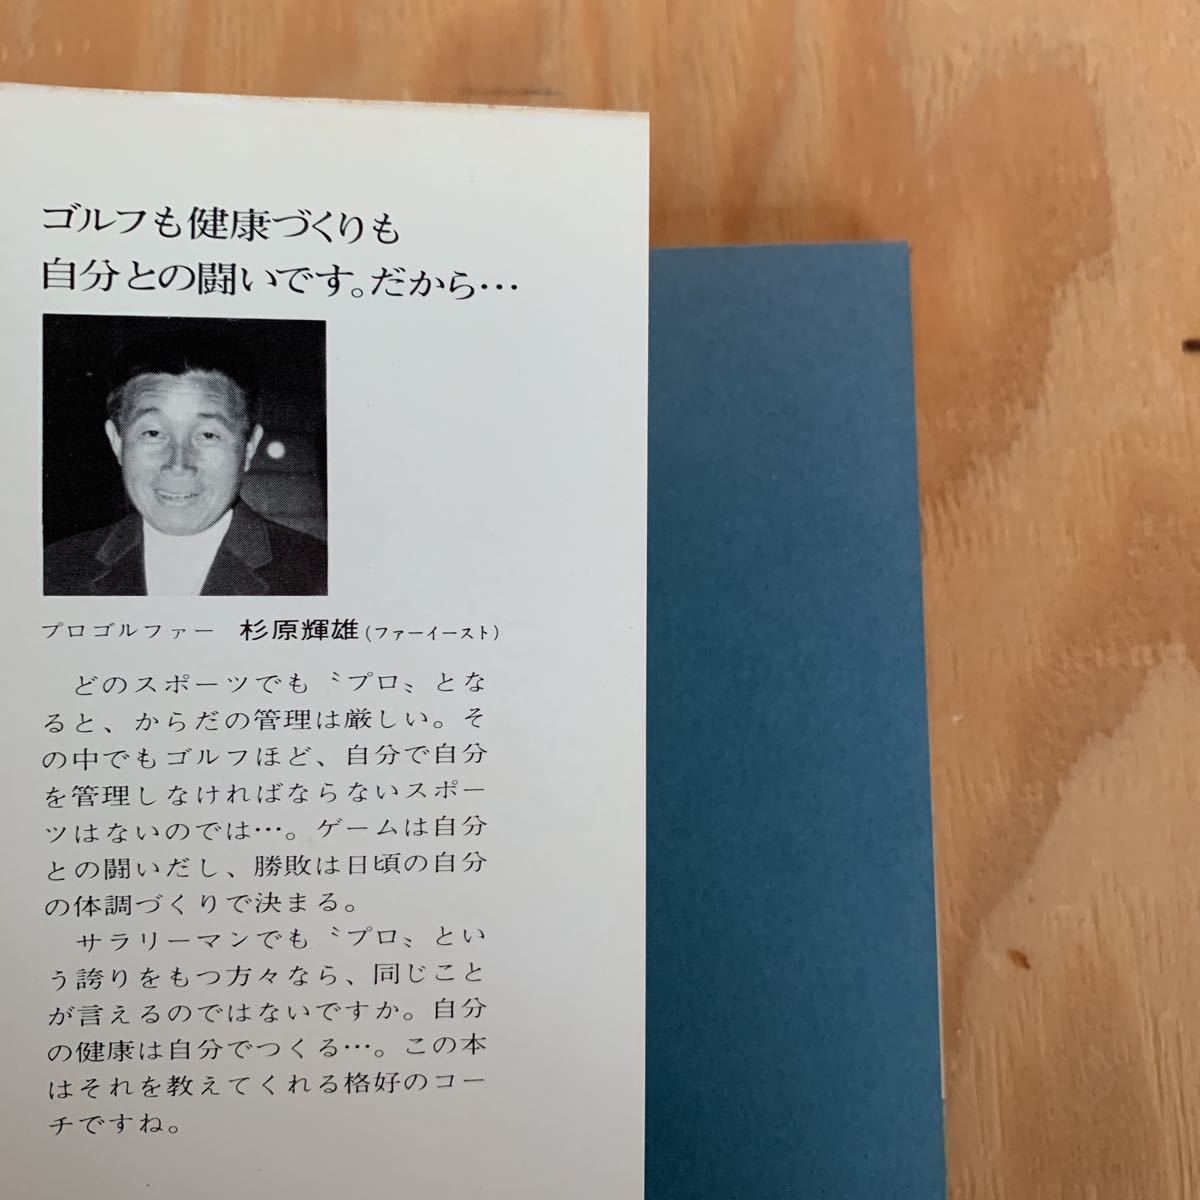 ゴルフも健康づくりも
自分との闘いです。だから…
プロゴルファー　杉原輝雄(ファーイースト)
　どのスポーツでも〝プロ〟とな
ると、からだの管理は厳しい。そ
の中でもゴルフほど、自分で自分
を管理しなければならないスポー
ツはないのでは…。ゲームは自分
との闘いだし、勝敗は日頃の自分
の体調づくりで決まる。
　サラリーマンでも〝プロ〟とい
う誇りをもつ方々なら、同じこと
が言えるのではないですか。自分
の健康は自分でつくる…。この本
はそれを教えてくれる格好のコー
チですね。